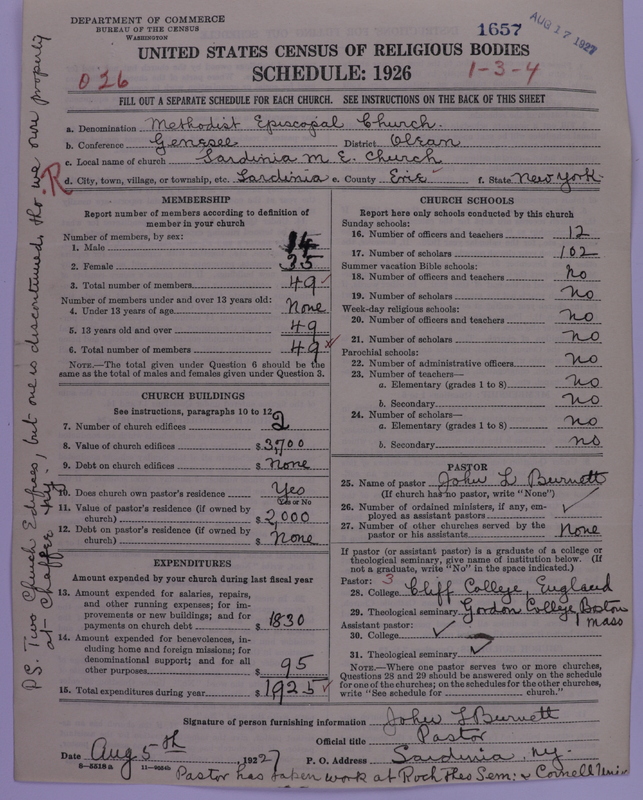 DEPARTMENT OF COMMERCE
BUREAU OF THE CENSUS
WASHINGTON
1657
AUG 17 1927
UNITED STATES CENSUS OF RELIGIOUS BODIES
026
SCHEDULE: 1926
1-3-4
FILL OUT A SEPARATE SCHEDULE FOR EACH CHURCH. SEE INSTRUCTIONS ON THE BACK OF THIS SHEET
a. Denomination Methodist Episcopal Church.
b. Conference Genesee District Olean
c. Local name of church Sardinia M. E. Church
R
d. City, town, village, or township, etc. Sardinia e. County Erie f. State New York
MEMBERSHIP
Report number of members according to definition of member in your church
Number of members, by sex:
1. Male 14
2. Female 35
3. Total number of members 49
Number of members under and over 13 years old:
4. Under 13 years of age None
5. 13 years old and over 49
6. Total number of members 49
NOTE.—The total given under Question 6 should be the
same as the total of males and females given under Question 3.
CHURCH BUILDINGS
See instructions, paragraphs 10 to 12
7. Number of church edifices 2
8. Value of church edifices $ 3,700
9. Debt on church edifices $ none
10. Does church own pastor's residence Yes
Yes or No
11. Value of pastor's residence (if owned by
church) $ 2,000
12. Debt on pastor's residence (if owned by
church) $ None
EXPENDITURES
Amount expended by your church during last fiscal year
13. Amount expended for salaries, repairs,
and other running expenses; for im-
provements or new buildings; and for
payments on church debt $ 1830
14. Amount expended for benevolences, in-
cluding home and foreign missions; for
denominational support; and for all
other purposes $ 95
15. Total expenditures during year $ 1925
CHURCH SCHOOLS
Report here only schools conducted by this church
Sunday schools:
16. Number of officers and teachers 12
17. Number of scholars 102
Summer vacation Bible schools:
18. Number of officers and teachers No
19. Number of scholars no
Week-day religious schools:
20. Number of officers and teachers no
21. Number of scholars no
Parochial schools:
22. Number of administrative officers no
23. Number of teachers—
a. Elementary (grades 1 to 8) no
b. Secondary no
24. Number of scholars—
a. Elementary (grades 1 to 8) no
b. Secondary no
PASTOR
25. Name of pastor John L Burnett
(If church has no pastor, write "None")
26. Number of ordained ministers, if any, em-
ployed as assistant pastors
27. Number of other churches served by the
pastor or his assistants None
If pastor (or assistant pastor) is a graduate of a college or
theological seminary, give name of institution below. (If
not a graduate, write "No" in the space indicated.)
Pastor: 3
28. College Cliff College, England
29. Theological seminary Gordon College, Boston
Mass
Assistant pastor:
30. College
31. Theological seminary
NOTE.—Where one pastor serves two or more churches,
Questions 28 and 29 should be answered only on the schedule
for one of the churches; on the schedules for the other churches,
write "See schedule for church."
Signature of person furnishing information John L Burnett
Official title Pastor
Date Aug 5th, 1927 P. O. Address Sardinia, NY.
8—5518a
Pastor has taken work at Roch Theo Sem: & Cornell Univ
P.S. Two Church Edifices, but one is discontinued, tho we own property
at Chaffee NY.